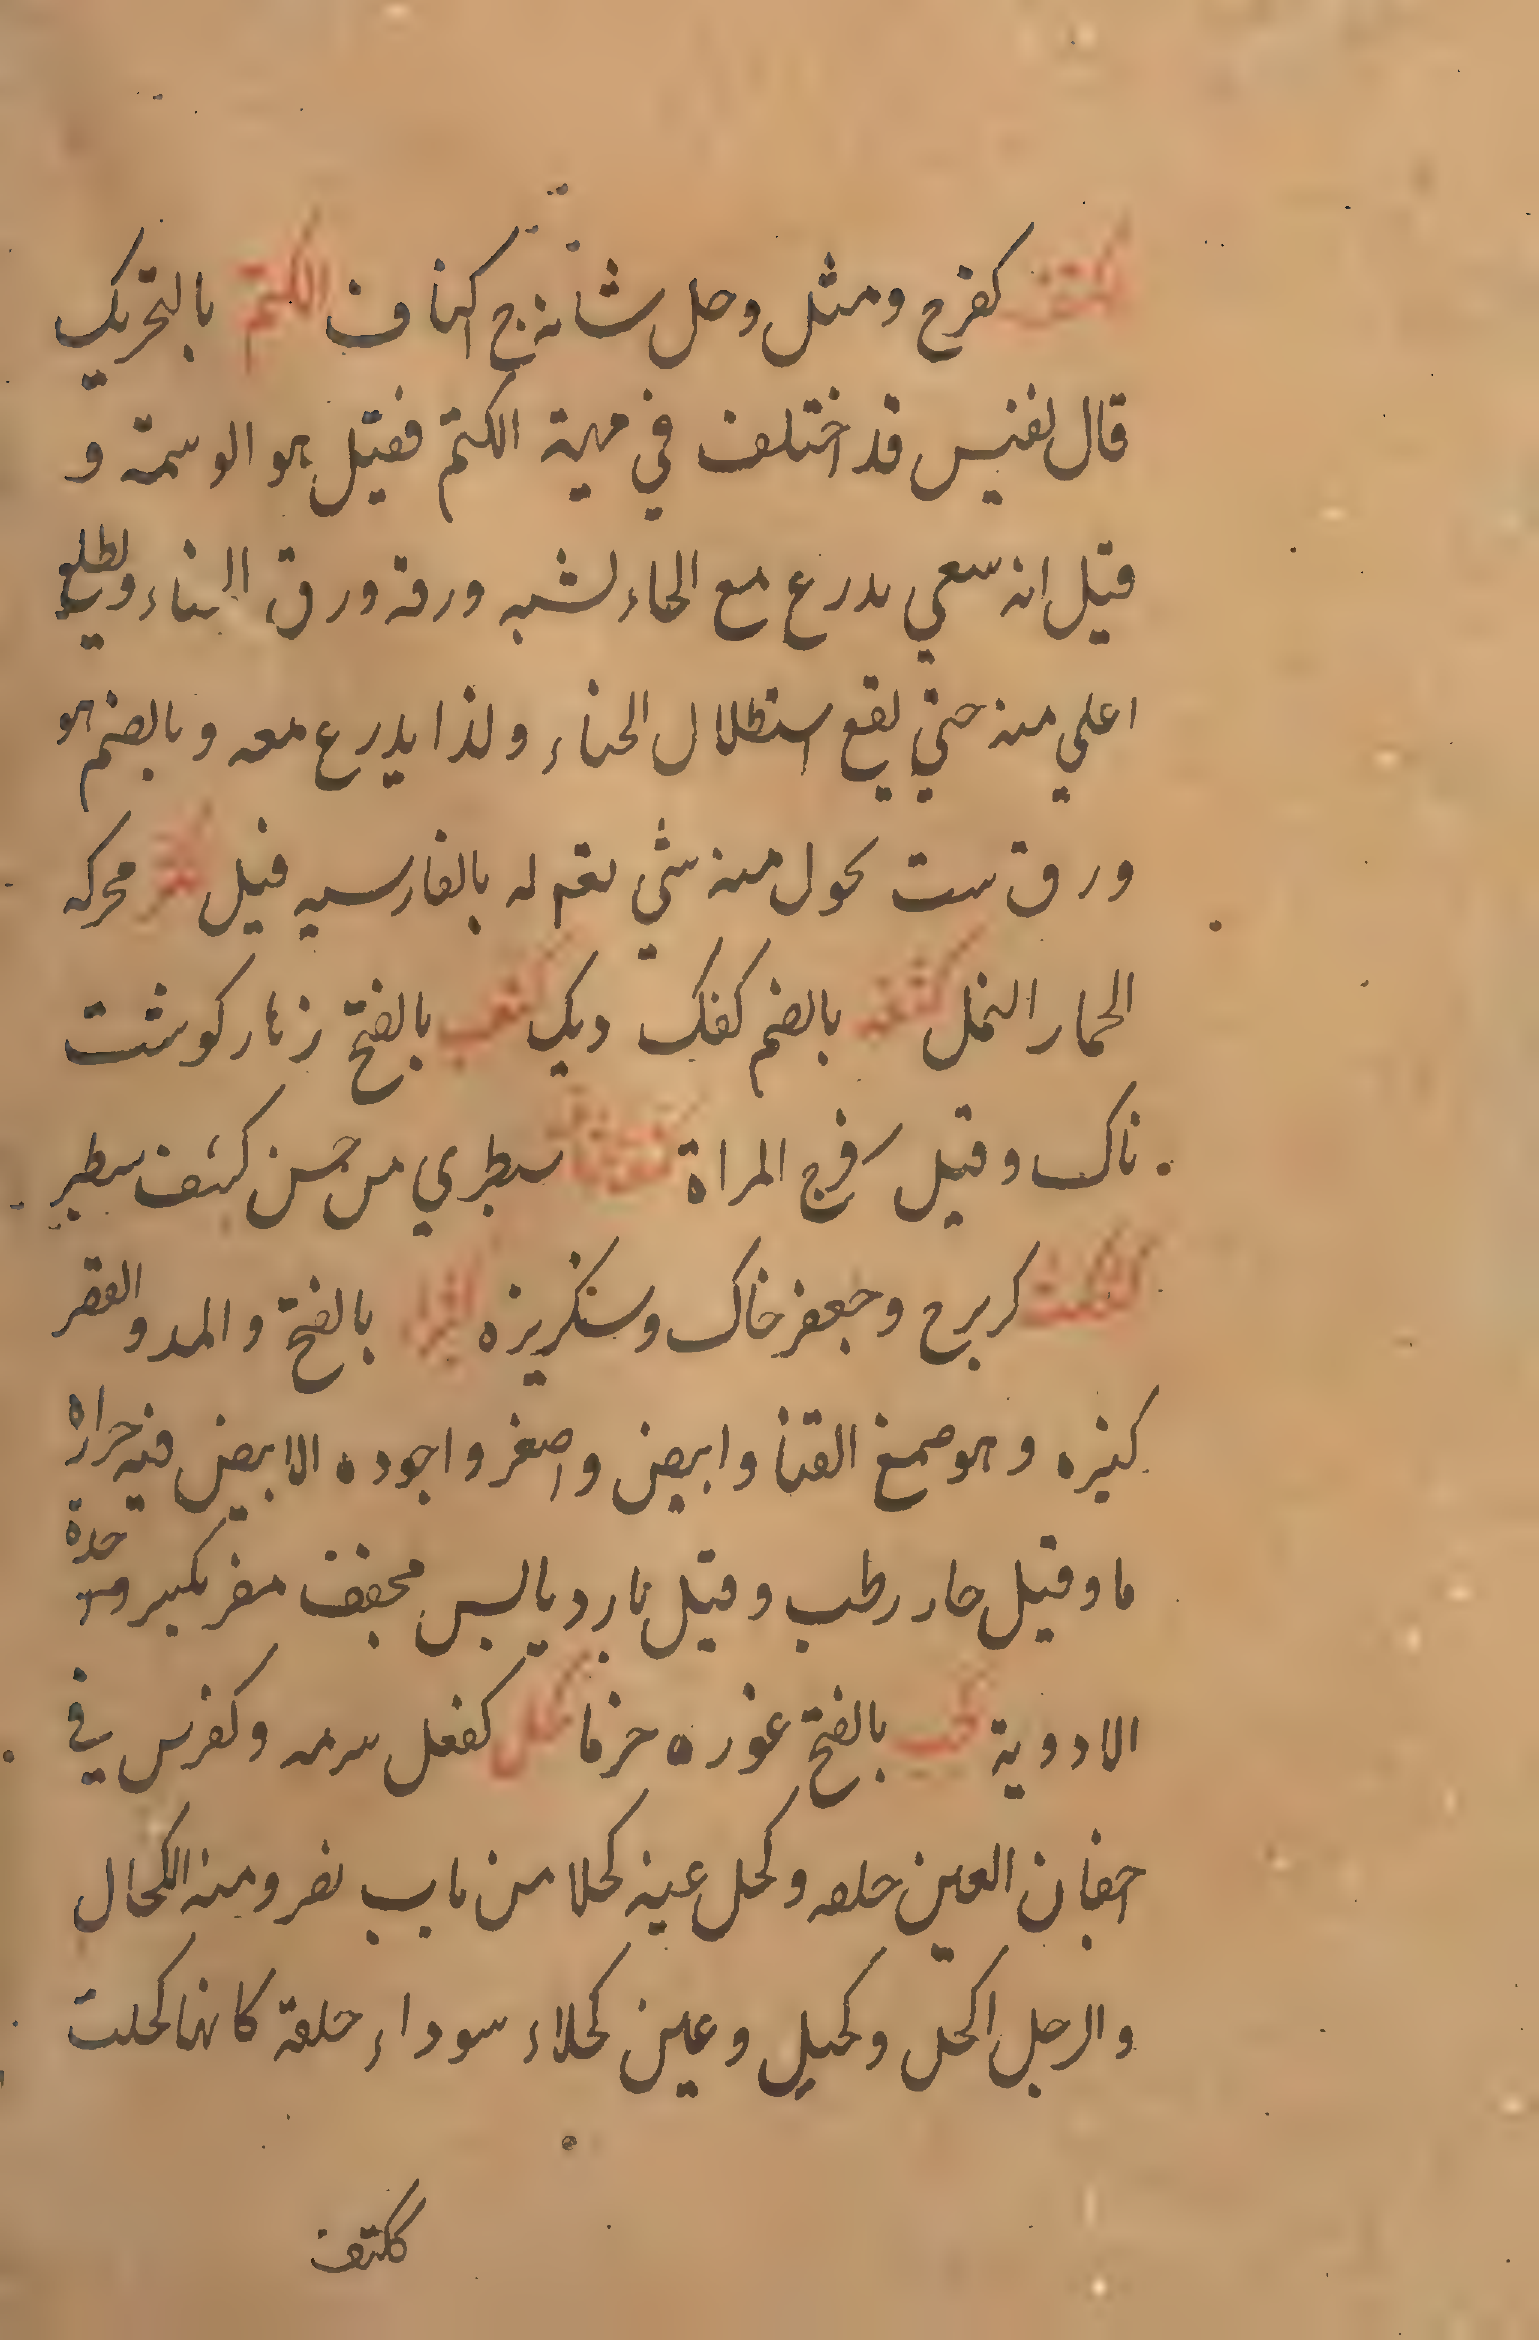 كتف كفرح ومثل وحل شانه ج اكتاف الكتم بالتحريك
قال نفيس قد اختلف في مهية الكتم فقيل هو الوسمة و
قيل انه سعي بدرع مع الحاء لشبه ورقه ورق الـناء ويطلع
اعلي منه حتي يقع استظلال الحناء ولذا يدرع معه وبالضم هو
ورق ست كول منه شي يقم له بالفارسيه فيل محركه
الحمار النخل كثفه بالضم كفك ديك كثعب بالفتح زنار كوشت
ناك وقيل فرج المراة سطبري من حسن كثف سطبر
الكثكث كربرج وجعفر خاك وسنكريزه كثيرا بالفتح والمد والقصر
كتيره وهو صمغ القتا وابيض واصفر واجوده الابيض فيه حراره
ما وقيل حار رطب وقيل بارد يابس مجفف مغر يكسر حدة
الادوية كحب بالفتح غوره خرما كحل كفعل سرمه وكفرس في
اجفان العين خلقه وكحل عينه كحلا من باب نصر ومنه الكحال
والرجل اكحل وكحيل وعين كحلاء سوداء خلقة كانها كحلت
كتف